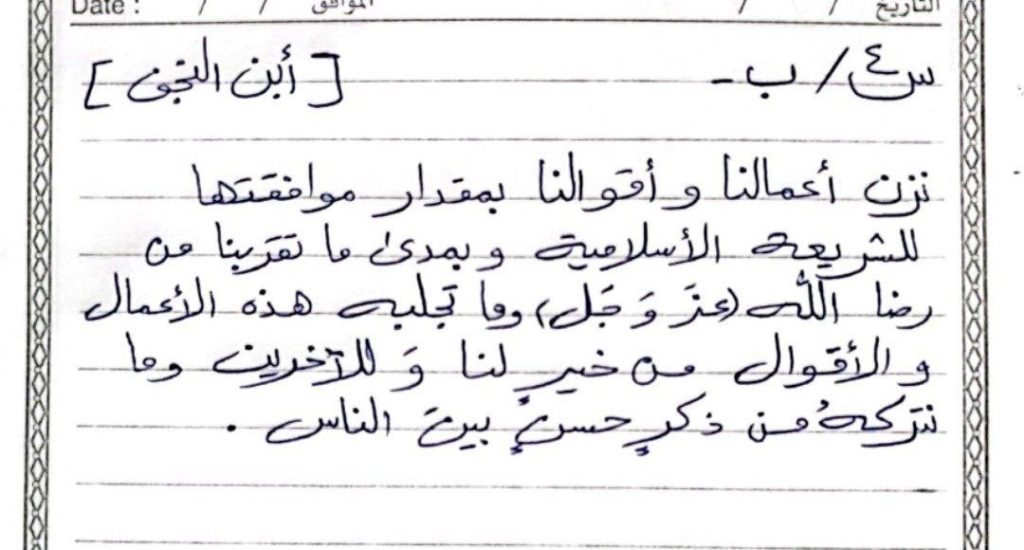 التاريخ / / الموافق / / Date :
س٤/ ب- [أبن النجف]
نزن أعمالنا و أقوالنا بمقدار موافقتها
للشريعة الأسلامية و بمدى ما تقربنا من
رضا الله (عزَ وَ جَل) وما تجلبه هذه الأعمال
و الأقوال من خيرٍ لنا وَ للآخرين وما
نتركهُ من ذكرٍ حسنٍ بينَ الناس .